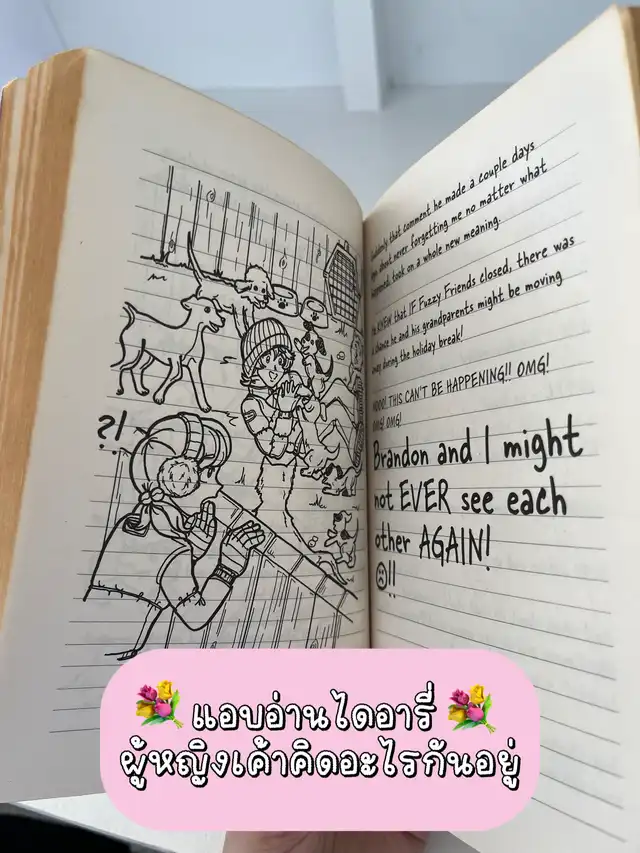 ?!
that comment he made a couple days
about never forgetting me no matter what
happened, took on a whole new meaning.
KNEW that IF Fuzzy Friends closed, there was
a chance he and his grandparents might be moving
away during the holiday break!
NOOO! THIS CAN'T BE HAPPENING!! OMG!
OMG! OMG!
Brandon and I might
not EVER see each
other AGAIN!
☹!!
💐 แอบอ่านไดอารี่ 💐
ผู้หญิงเค้าคิดอะไรกันอยู่